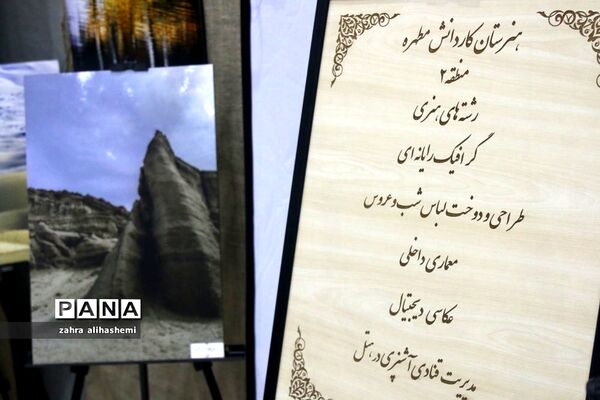 هنرستان کاردانش مطهره
منطقه ۲
رشته های هنری
گرافیک رایانه ای
طراحی و دوخت لباس شب و عروس
معماری داخلی
عکاسی دیجیتال
مدیریت قنادی آشپزی در هتل
PANA
zahra alihashemi